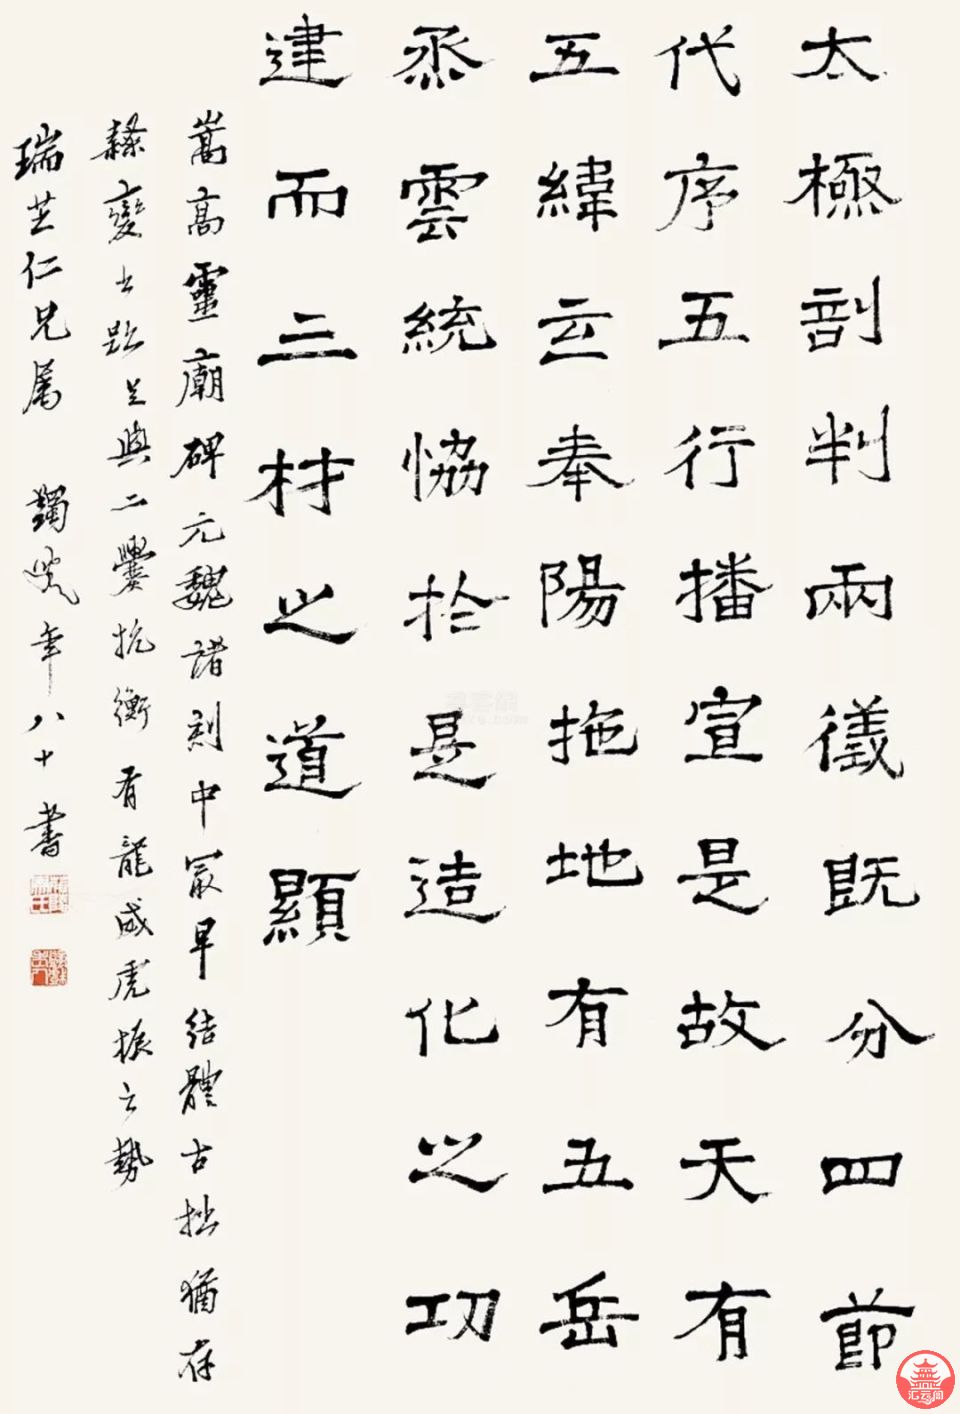 太極剖判兩儀既分四節
代序五行播宣是故天有
五緯奉陽拖地有五岳
烝雲統恊扵是造化之功
建而三材之道顯
嵩高靈廟碑元魏諸刻中冣早結體古拙猶存
隸變之跡足與二爨抗衡有龍威虎振之勢
瑞芝仁兄属 蠲叟年八十書
汇云阁